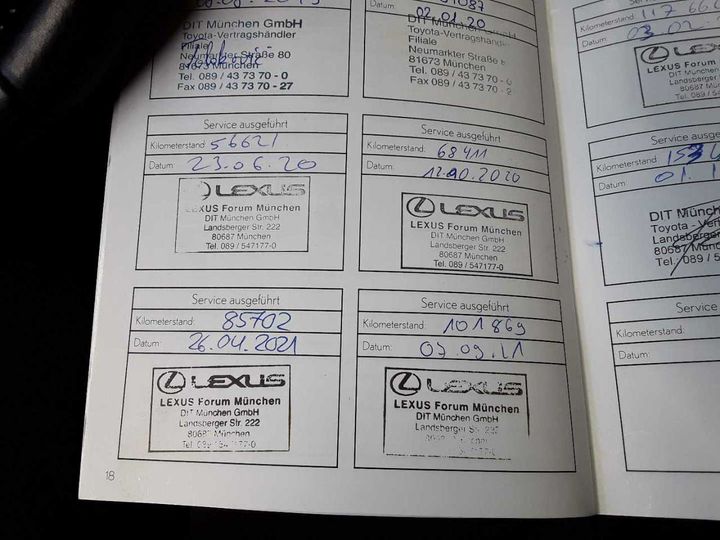 DIT München GmbH
Toyota-Vertragshändler
Filiale
Neumarkter Straße 80
81673 München
Tel. 089 / 43 73 70 - 0
Fax 089 / 43 73 70 - 27
Datum:
02.01.20
Toyota-Vertragshändler
Filiale
Neumarkter Straße
81673 München
Tel. 089 / 43 73 70
Fax 089 / 43 73 70 - 2
Service ausgeführt
Kilometerstand: 56621
Datum: 23.06.20
LEXUS
LEXUS Forum München
DIT München GmbH
Landsberger Str. 222
80687 München
Tel. 089 / 547177-0
Service ausgeführt
Kilometerstand: 68411
Datum: 12.10.2020
LEXUS
LEXUS Forum München
DIT München GmbH
Landsberger Str. 222
80687 München
Tel. 089 / 547177-0
Service ausgeführt
Kilometerstand: 85702
Datum: 26.04.2021
LEXUS
LEXUS Forum München
DIT München GmbH
Landsberger Str. 222
80687 München
Service ausgeführt
Kilometerstand: 101869
Datum: 07.09.21
LEXUS
LEXUS Forum München
DIT München GmbH
Landsberger Str.
18
Kilometerstand:
Datum:
LEXUS
LEXUS Foru
DIT Münch
Landsberge
80687
Tel. 089
Service
Kilometerstand:
Datum: 01.
DIT Münch
Toyota - Ver
Landsberg
80687 Mün
Tel.: 089 / 54
Service
Kilometerstand:
Datum: